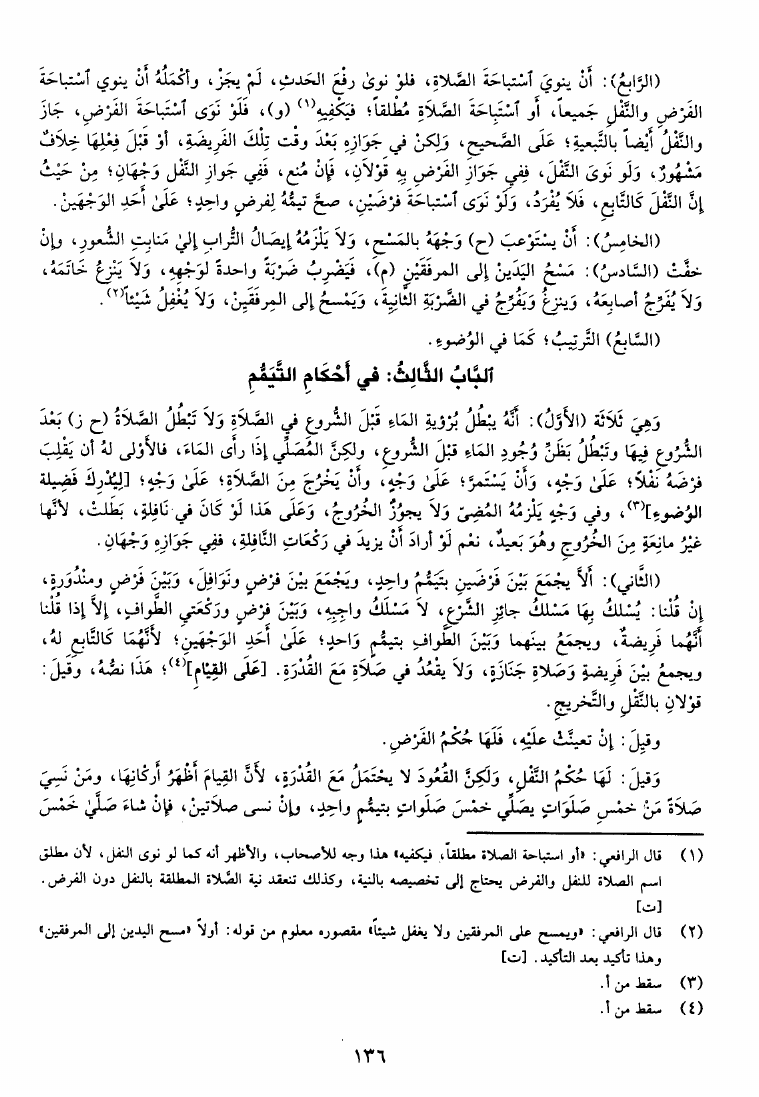 (الرَّابعُ): أَنْ ينويَ ٱسْتباحَةَ الصَّلاةِ، فلوْ نوىٰ رفْعَ الحَدثِ، لَمْ يجَزْ، وأكْمَلُهُ أَنْ ينوي ٱسْتباحَةَ
الفَرْضِ والنَّفْلِ جَميعاً، أَو ٱسْتِبَاحَةَ الصَّلاةِ مُطْلقاً؛ فيَكْفِيهِ(١) (و)، فَلَوْ نَوَى ٱسْتِبَاحَةَ الفَرْضِ، جَازَ
والنَّفْلُ أيْضاً بالتَّبعيةِ؛ عَلَى الصَّحيحِ، وَلكِنْ في جَوَازِهِ بَعْدَ وقْت تِلْكَ الفَرِيضَةِ، أوْ قَبْلَ فِعْلِهَا خِلَافٌ
مَشْهُورٌ، وَلَو نَوىَ النَّفْلَ، ففِي جَوَازِ الفَرْضِ بِهِ قَوْلاَنِ، فَإنْ مُنع، فَفِي جَوازِ النَّفْل وَجْهَانِ؛ مِنْ حَيْثُ
إنَّ النَّفْلَ كَالتَّابعِ، فَلاَ يُفْرَدُ، وَلَوْ نَوَى ٱسْتباحَةَ فرْضَيْنِ، صحَّ تيمُّهُ لِفرضٍ واحدٍ؛ عَلَىٰ أَحَدِ الوَجْهَيْنْ.
(الخامِسُ): أَنْ يسْتَوْعبَ (ح) وَجْهَهُ بالمَسْحِ، وَلاَ يَلْزَمُهُ إيصَالُ التُّرابِ إليٰ مَنابِتِ الشُّعورِ، وإنْ
خفَّتْ (السَّادسُ): مَسْحُ اليَدَيْنْ إلى المرفَقَيْنِ (م)، فَيَضْرِبُ ضَرْبَةً واحدةً لوَجْهِهِ، وَلاَ يَنْزِعُ خَاتَمَهُ،
وَلاَ يُفَرِّجُ أصابِعَهُ، وَينزِعُ وَيَفُرِّجُ في الضَّرْبَةِ الثَّانِيَةِ، وَيَمْسحُ إلى المِرفَقَيِنْ، وَلاَ يُغْفِلُ شَيْئاً(٢).
(السَّابعُ) التَّرتِيبُ؛ كَمَا في الوُضوءِ.
ٱلبَابُ الثَّالِثُ: في أَحْكَامِ التَّيَمُّمِ
وَهِيَ ثَلاَثَة (الأوَّلُ): أنَّهُ يبْطُلُ بُرْؤيةِ المَاءِ قَبْلَ الشُّروعِ في الصَّلاةِ وَلاَ تَبْطُلُ الصَّلاَةُ (ح ز) بَعْدَ
الشُّرُوعِ فِيهَا وتَبْطُلُ بَظَنِّ وُجُودِ المَاءِ قبْلَ الشُّروعِ، ولكِنَّ المُصَلِّي إذَا رأَى المَاءَ، فالأوْلى لهُ أن يَقْلِبَ
فرْضَهُ نَفْلاً؛ عَلَىٰ وَجْهٍ، وَأَنْ يَسْتَمرَّ؛ عَلَىٰ وَجْهٍ، وأَنْ يَخْرُجَ مِنَ الصَّلاةِ؛ عَلَىٰ وَجْهٍ؛ [لِيُدْرِكَ فَضِيلة
الوُضوءِ](٣)، وفي وَجْهٍ يَلْزمُهُ المُضِىّ وَلاَ يجوُزُ الخُرُوجُ، وَعَلَى هَذا لَوْ كَانَ في نَافِلةٍ، بَطَلتْ، لأنَّها
غيْرُ مانِعَةٍ مِنَ الخُرُوجِ وهُوَ بَعيدٌ، نعْم لَوْ أرادَ أَنْ يزيدَ في رَكْعَاتِ النَّافِلةِ، ففِي جَوَازِهِ وَجْهَانِ.
(الثَّاني): ألاَّ يجْمَعَ بَيْنَ فَرْضَينِ بتَيمُّمُ واحدٍ، ويجْمَعَ بيْنَ فرْضٍ ونَوَافِلَ، وَبَيْنَ فَرْضٍ ومنْذُورَةٍ،
إنْ قُلْنَا: يُسْلكُ بِهَا مَسْلكُ جائِزِ الشَّرْعِ، لاَ مَسْلَكُ واجِبِهِ، وَبَيْنَ فَرْضٍ ورَكْعَتي الطَّوافِ، إلاَّ إذَا قُلْنا
أنَّهُما فَرِيضةٌ، ويجمَعُ بينَهما وَبَيْنَ الطَّوافِ بتيمُّمٍ وَاحدٍ؛ عَلَىٰ أَحَدِ الوَجْهَينِ؛ لأنَّهُمَا كَالتَّابعِ لهُ،
ويجمعُ بيْنَ فَرِيضةٍ وَصَلاةِ جَنَازَةٍ، وَلاَ يقْعُدُ في صَلَاةٍ مَعَ القُدْرَةِ. [عَلَى القِيَامِ](٤)؛ هَذَا نصُّهُ، وَقيلَ:
قوْلانِ بالنَّقْلِ والتَّخريجِ.
وقيلَ: إنْ تعينَّتْ علَيْهِ، فَلَهَا حُكْمُ الفَرْضِ.
وَقيلَ: لَهَا حُكْمُ النَّفْلِ، وَلَكِنَّ القُعُودَ لا يحْتَمَلُ مَعَ القُدْرَةِ، لأَنَّ القِيَامَ أظْهَرُ أرْكَانِهَا، ومَنْ نَسِيَ
صَلاَةً مَنْ خمْسِ صَلَوَاتٍ يصَلِّي خمْسَ صَلَواتٍ بتيمُّمِ واحِدٍ، وإنْ نسى صلاتينْ، فإنْ شاءَ صَلَّىٰ خَمْسَ
(١) قال الرافعي: «أو استباحة الصلاة مطلقاً، فيكفيه» هذا وجه للأصحاب، والأظهر أنه كما لو نوى النفل، لأن مطلق
اسم الصلاة للنفل والفرض يحتاج إلى تخصيصه بالنية، وكذلك تنعقد نية الصَّلاة المطلقة بالنفل دون الفرض.
[ت]
(٢) قال الرافعي: «ويمسح على المرفقين ولا يغفل شيئاً» مقصوره معلوم من قوله: أولاً «مسح اليدين إلى المرفقين»
وهذا تأكيد بعد التأكيد. [ت]
(٣) سقط من أ.
(٤) سقط من أ.
١٣٦